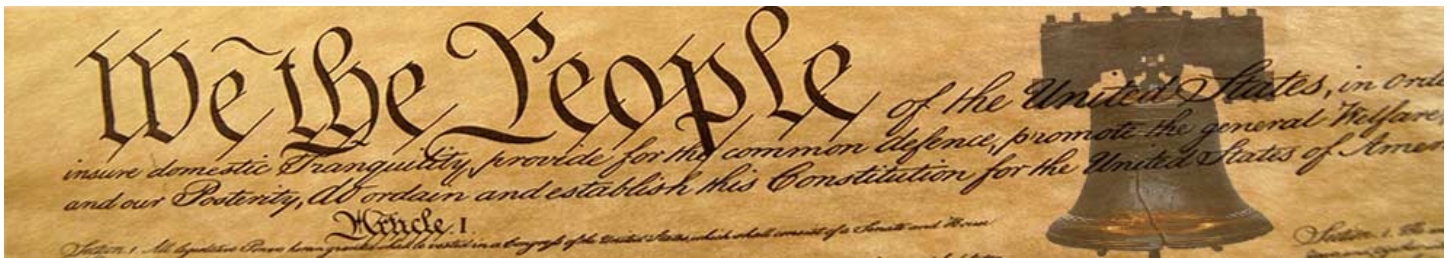 We the People of the United States, in orde
insure domestic Tranquility, provide for the common defence, promote the general Welfare,
and our Posterity, do ordain and establish this Constitution for the United States of Amer
Article. I.
Section. 1. All legislative Powers herein granted shall be vested in a Congress of the United States, which shall consist of a Senate and House
Section. 1. The